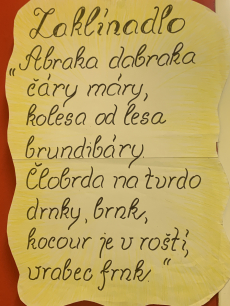 Zaklínadlo
„Abraka dabraka
čáry máry,
kolesa od lesa
brundibáry
Člobrda na tvrdo
drnky, brnk,
kocour je v roští,
vrabec frnk “